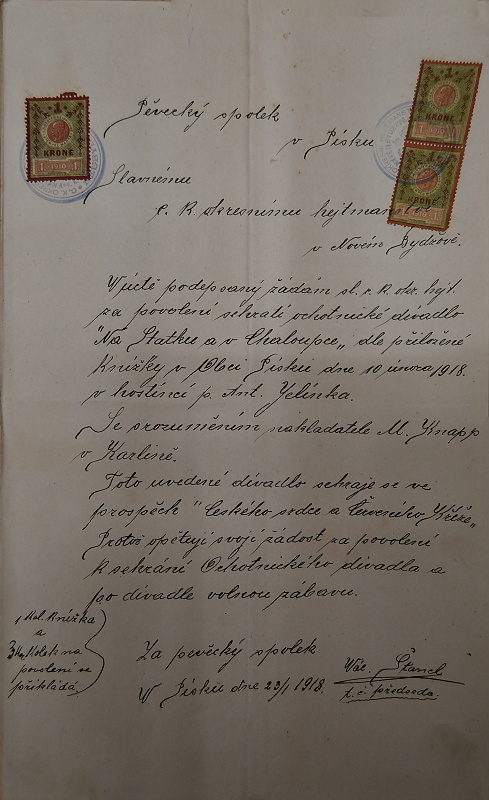 Pěvecký spolek
v Písku
Slavnému
c. k. okresnímu hejtmanství
v Novém Bydžově.
V úctě podepsaný žádám sl. c. k. okr. hejt.
za povolení sehráti ochotnické divadlo
"Na Statku a v Chaloupce„ dle přiložené
knížky v Obci Písku dne 10 února 1918.
v hostinci p. Ant. Jelínka.
Se srozuměním nakladatele M. Knapp
v Karlíně.
Toto uvedené divadlo sehraje se ve
prospěch "Českého srdce a Červeného Kříže„
Protož opětuji svoji žádost za povolení
k sehrání Ochotnického divadla a
po divadle volnou zábavu.
1 Kol. Knížka
a
3 Kolek na
povolení se
přikládá.
Za pěvecký spolek
V Písku dne 23/1 1918.
Vác. Štancl
t. č. předseda.
1
KRONE
1 1
1
KRONE
1
KRONE